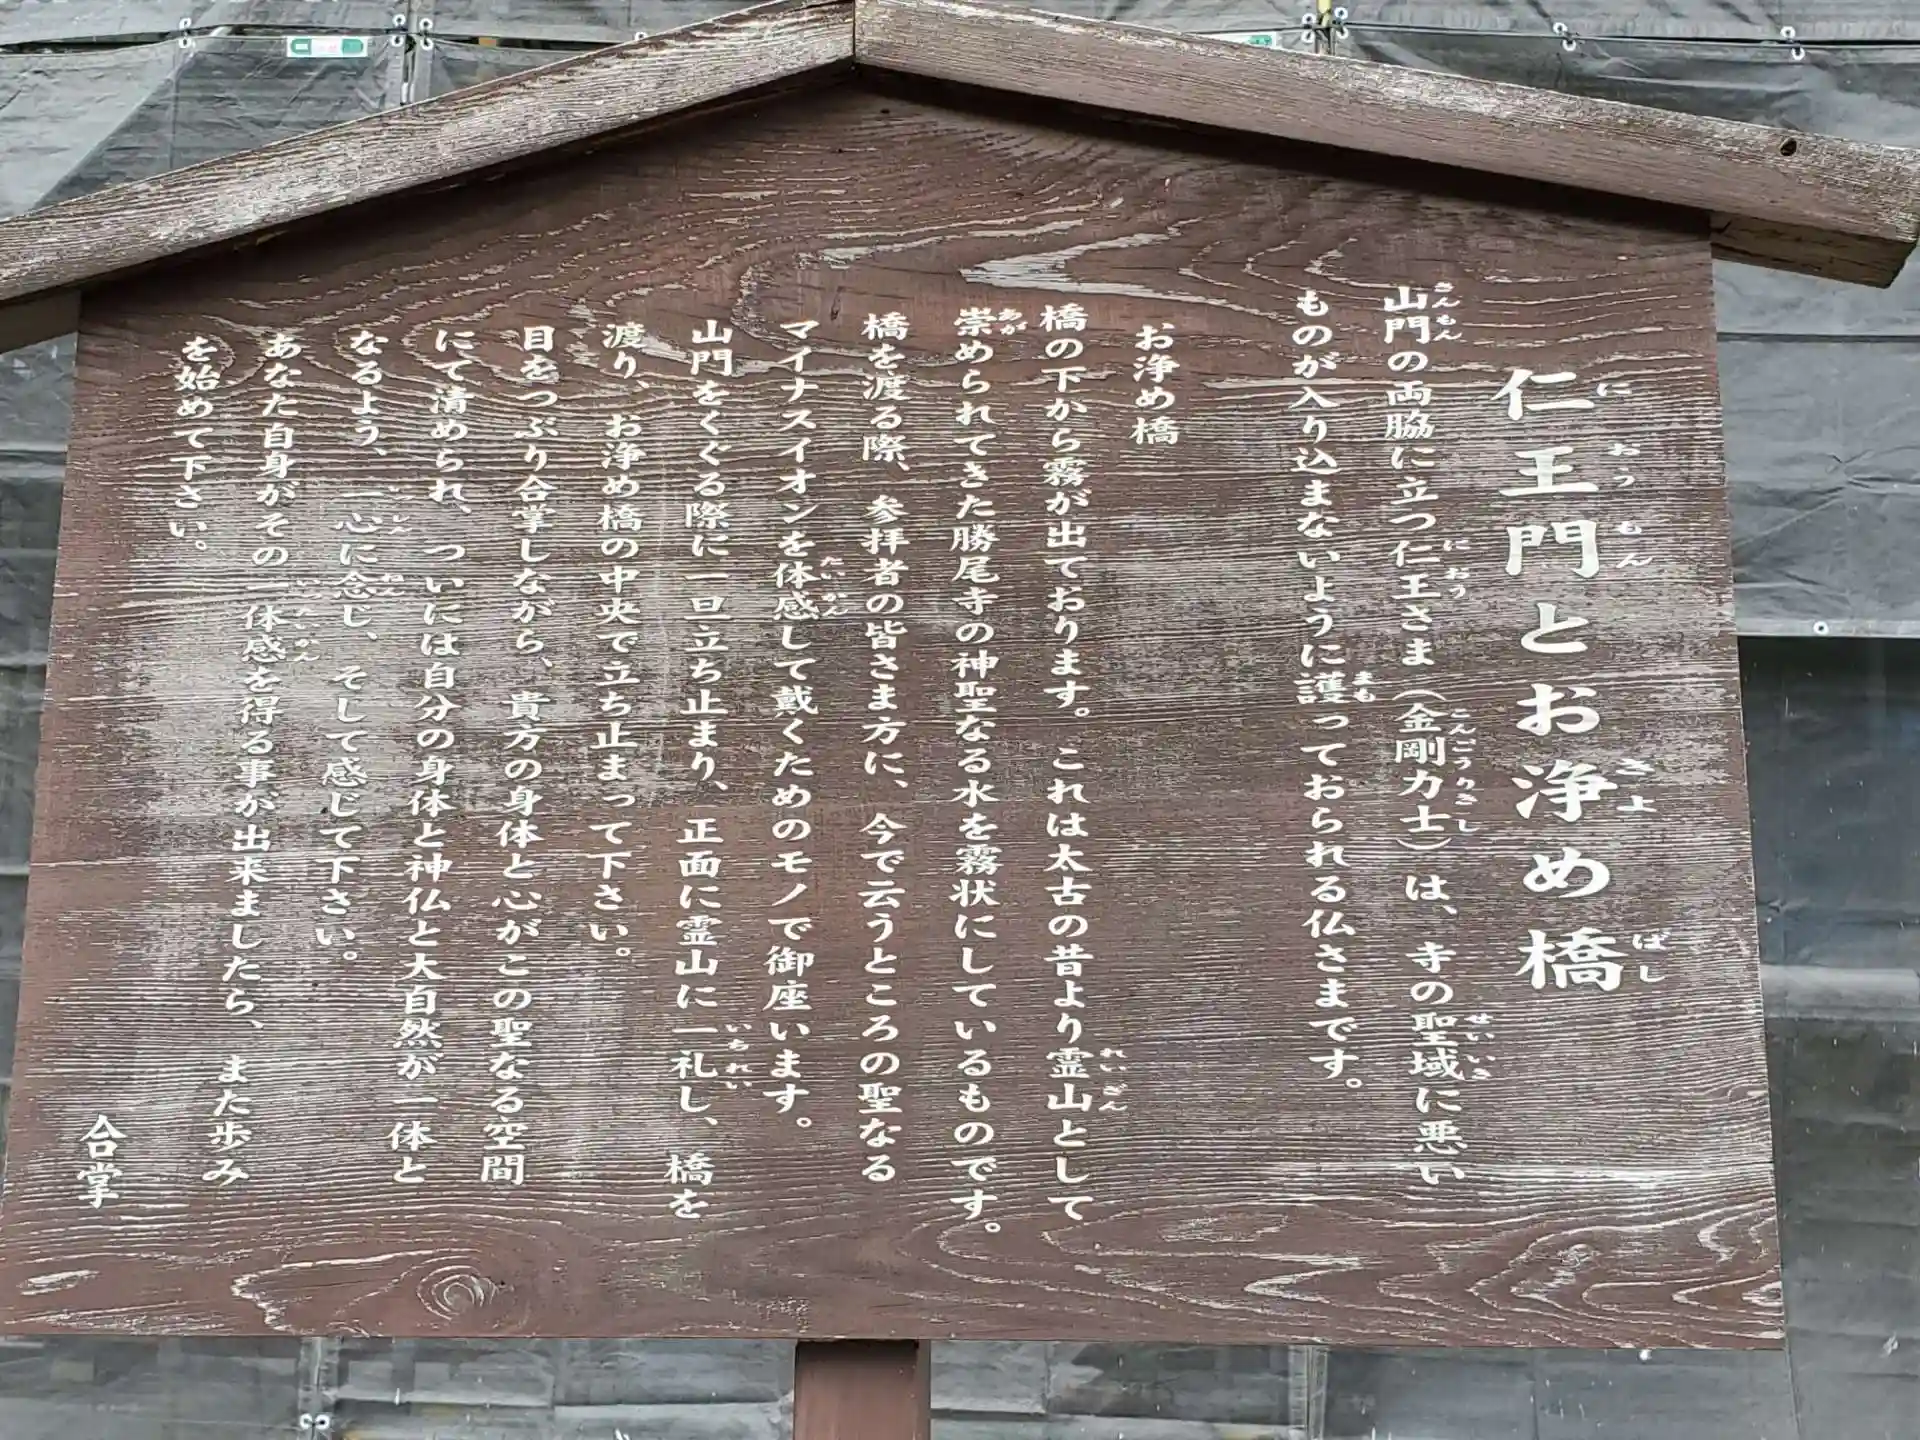 仁王門とお浄め橋
山門の両脇に立つ仁王さま(金剛力士)は、寺の聖域に悪い
ものが入り込まないように護っておられる仏さまです。
お浄め橋
橋の下から霧が出ております。これは太古の昔より霊山として
崇められてきた勝尾寺の神聖なる水を霧状にしているものです。
橋を渡る際、参拝者の皆さま方に、今で云うところの聖なる
マイナスイオンを体感して戴くためのモノで御座います。
山門をくぐる際に一旦立ち止まり、正面に霊山に一礼し、橋を
渡り、お浄め橋の中央で立ち止まって下さい。
目をつぶり合掌しながら、貴方の身体と心がこの聖なる空間
にて清められ、ついには自分の身体と神仏と大自然が一体と
なるよう、一心に念じ、そして感じて下さい。
あなた自身がその一体感を得る事が出来ましたら、また歩み
を始めて下さい。
合掌